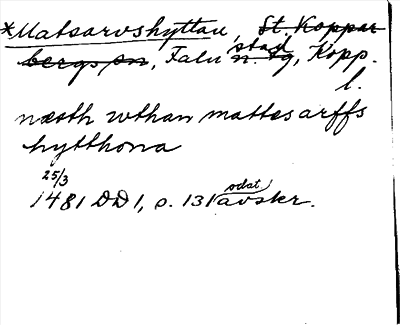 *Matsarvshyttan, St. Koppar
bergs sn, Falu stad n tg, Kopp.
l.
næsth wthan mattes arffs
hytthona
25/3
1481 DD 1, s. 131 odat. avskr.